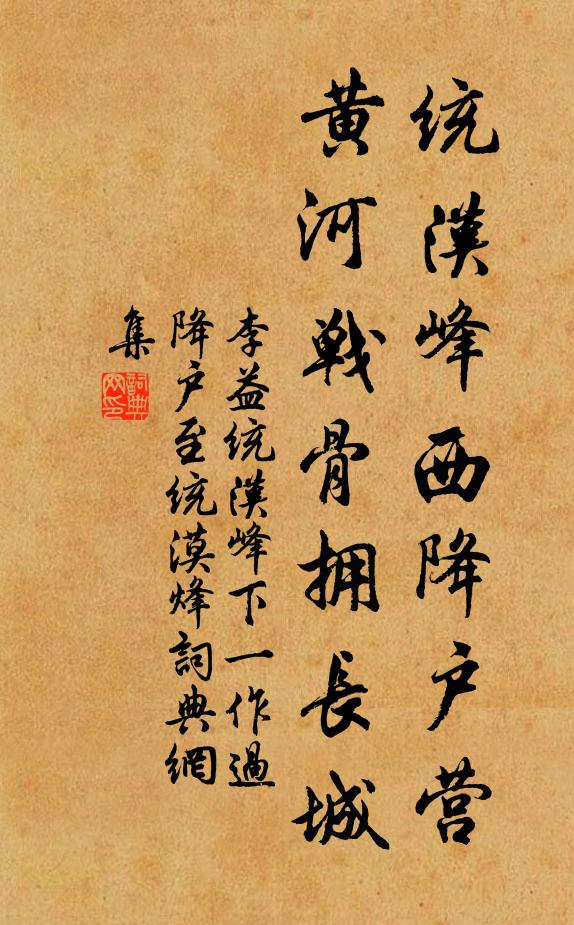 统漢峰西降户营
黄河戦骨拥長城
李益统漢峰下一作過
降户至统漠烽詞典網
集
詞典
网印